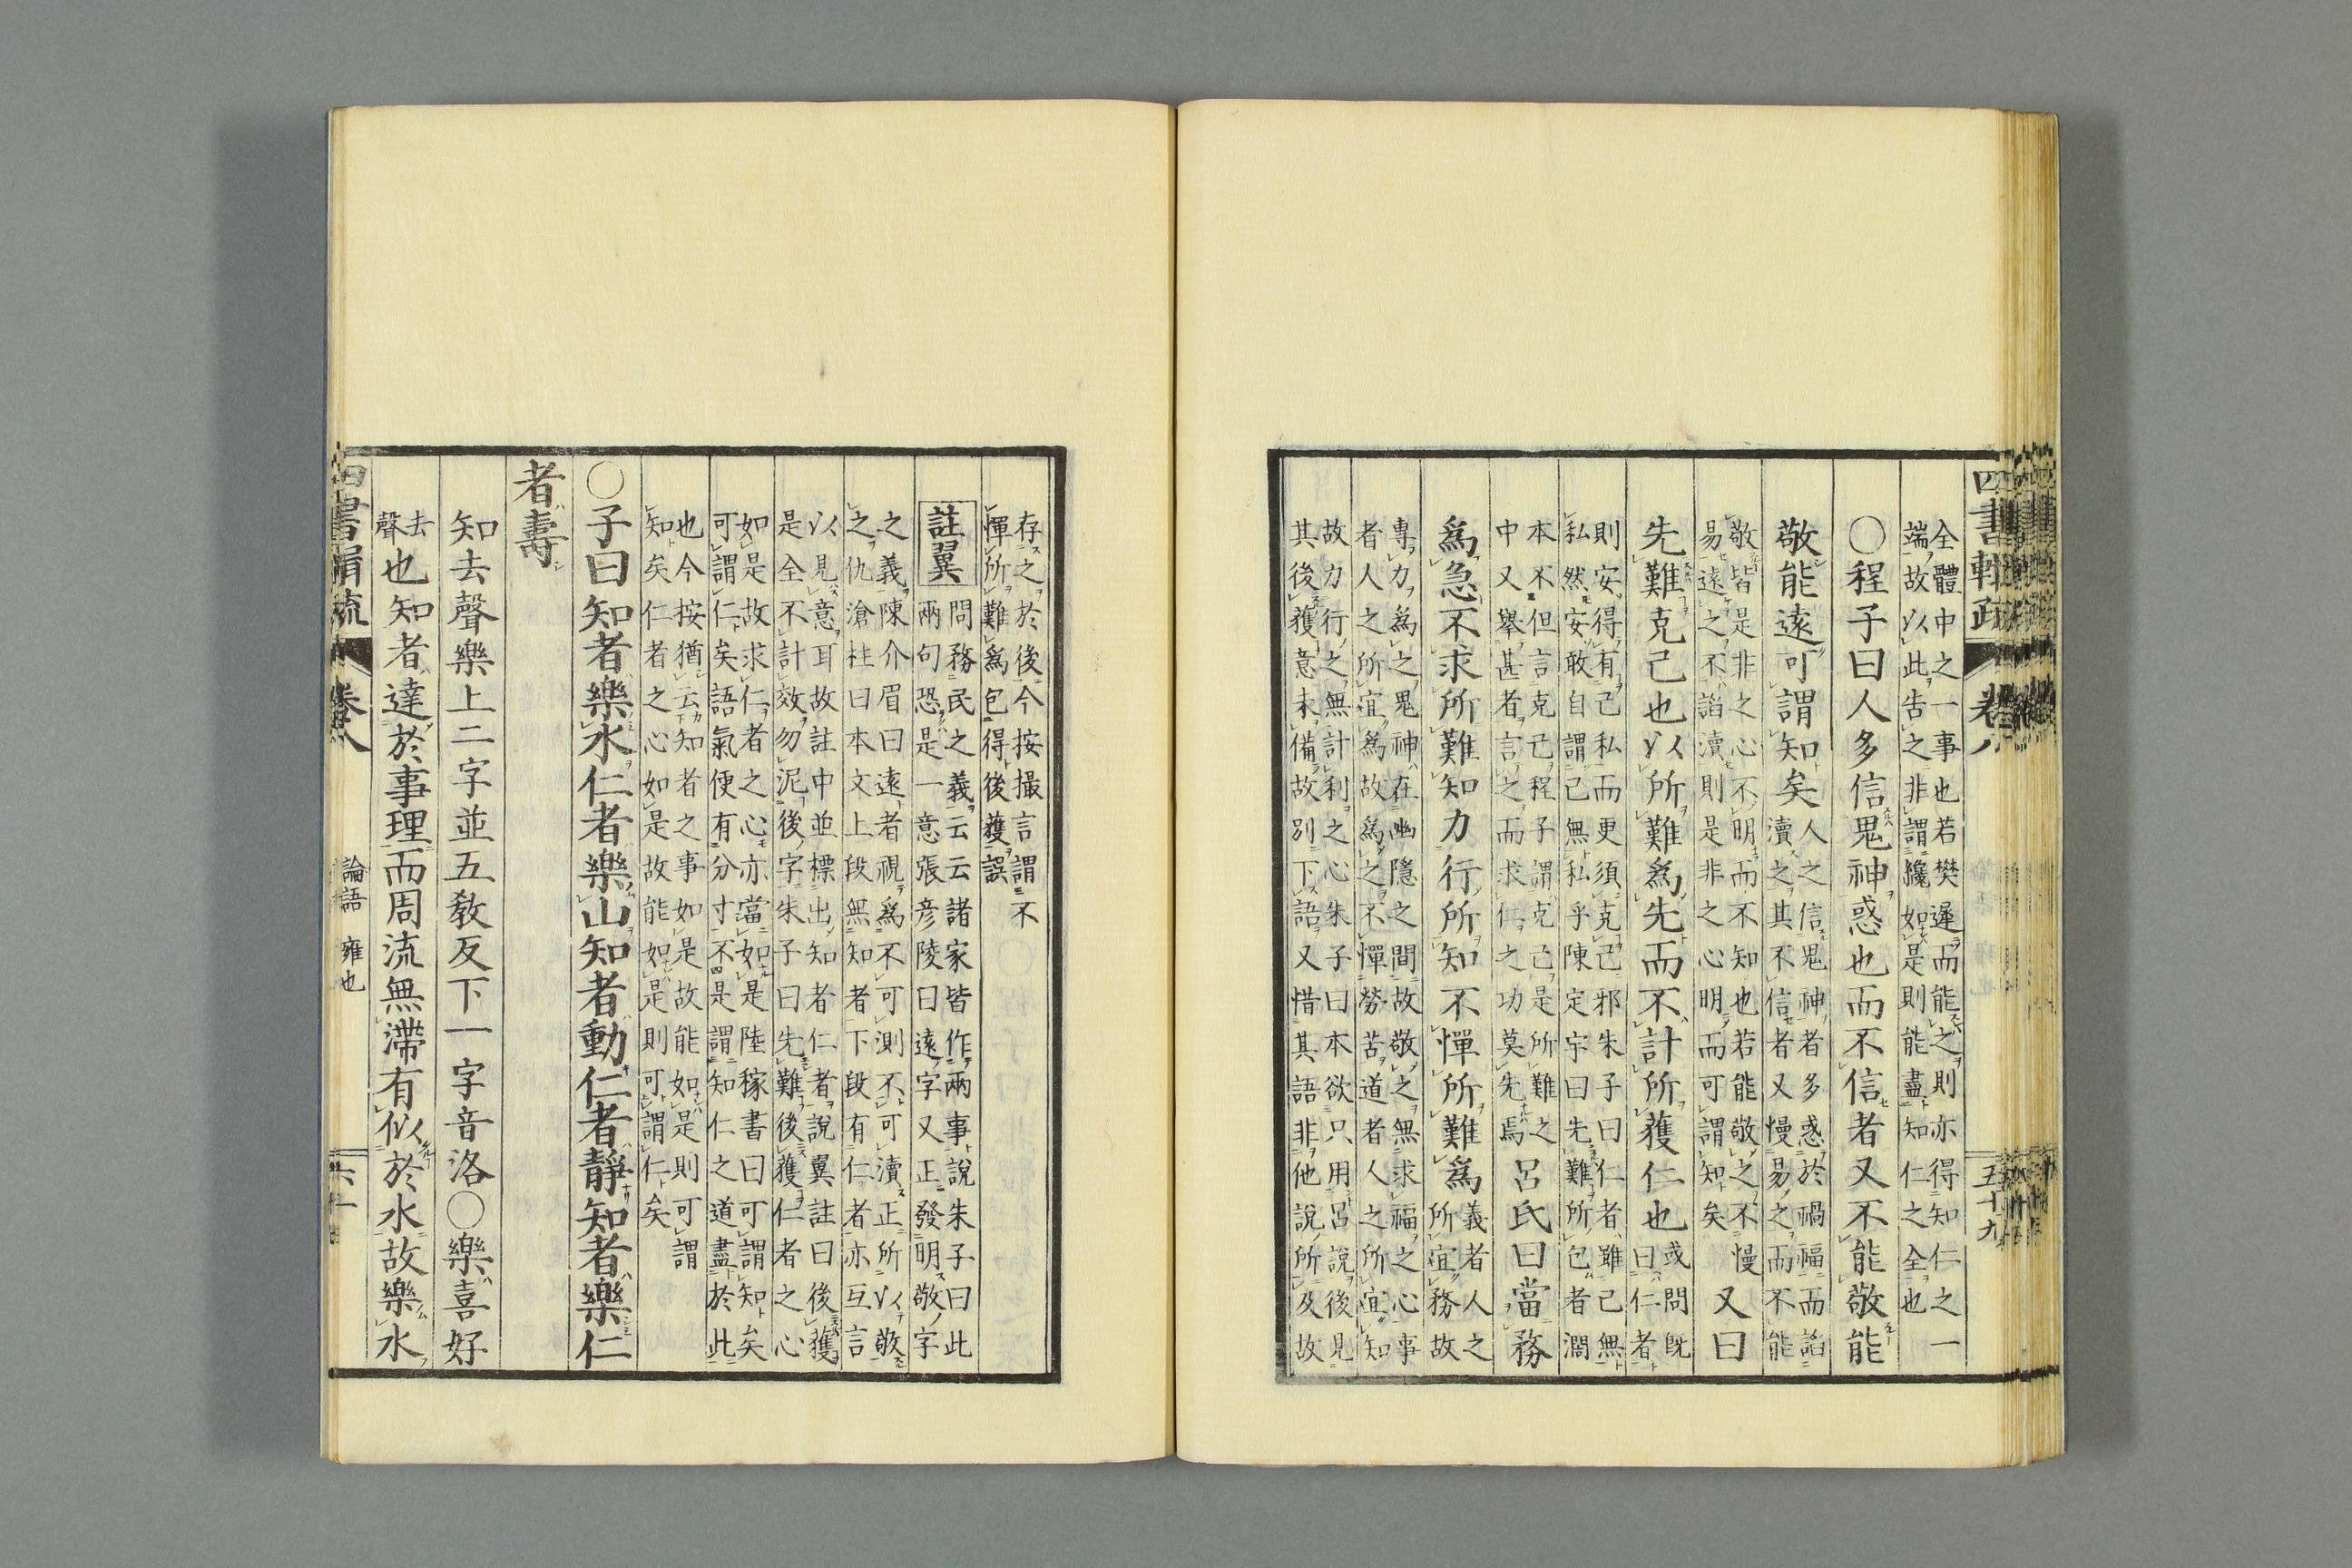 四書輯疏 卷八 五十九
全體中之一事也若樊遲而能之則亦得知仁之一
端故以此告之非謂纔如是則能盡知仁之全也
〇程子曰人多信鬼神惑也而不信者又不能敬能
敬能遠可謂知矣
人之信鬼神者多惑於禍福而諂
瀆之其不信者又慢易之而不能
敬皆是非之心不明而不知也若能敬之不慢
易遠之不諂瀆則是非之心明而可謂知矣
又曰
先難克己也以所難爲先而不計所獲仁也
或問既
曰仁者
則安得有己私而更須克己邪朱子曰仁者雖已無
私然安敢自謂己無私乎陳定宇曰先難所包者濶
本不但言克己程子謂克己是所難之
中又舉甚者言之而求仁之功莫先焉
呂氏曰當務
爲急不求所難知力行所知不憚所難爲
義者人之
所宜務故
專力爲之鬼神在幽隱之間故敬之無求福之心事
者人之所宜爲故爲之不憚勞苦道者人之所宜知
故力行之無計利之心朱子曰本欲只用呂說後見
其後獲意未備故別下語又惜其語非他說所及故
存之於後今按撮言謂不
憚所難爲包得後獲誤
註翼
問務民之義云云諸家皆作兩事說朱子曰此
兩句恐是一意張彦陵曰遠字又正發明敬字
之義陳介眉曰遠者視爲不可測不可瀆正所以敬
之仇滄柱曰本文上段無知者下段有仁者亦互言
以見意耳故註中並標出知者仁者說翼註曰後獲
是全不計效勿泥後字朱子曰先難後獲仁者之心
如是故求仁者之心亦當如是陸稼書曰可謂知矣
可謂仁矣語氣便有分寸不是謂知仁之道盡於此
也今按猶云知者之事如是故能如是則可謂
知矣仁者之心如是故能如是則可謂仁矣
〇子曰知者樂水仁者樂山知者動仁者靜知者樂仁
者壽
知去聲樂上二字並五敎反下一字音洛〇樂喜好
去
聲
也知者達於事理而周流無滯有似於水故樂水
四書輯疏 卷八 論語 雍也 六十